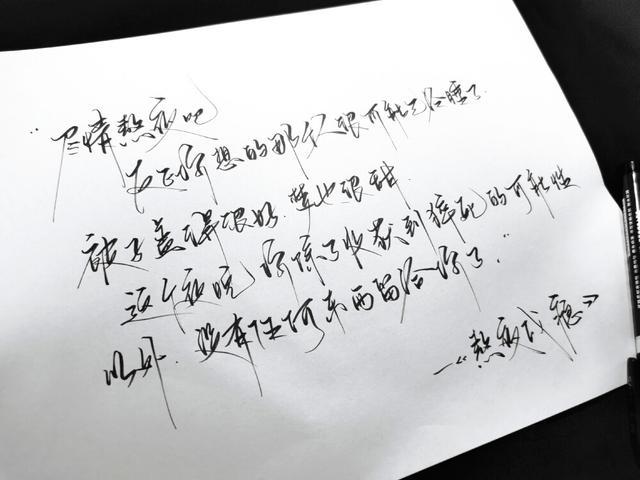 “尽情熬夜吧
反正你想的那个人很可能已经睡了
被子盖得很好.梦也很甜.
这个夜晚 你除了收获到猝死的可能性
以外.没有任何东西留给你了.”
—《熬夜成瘾》